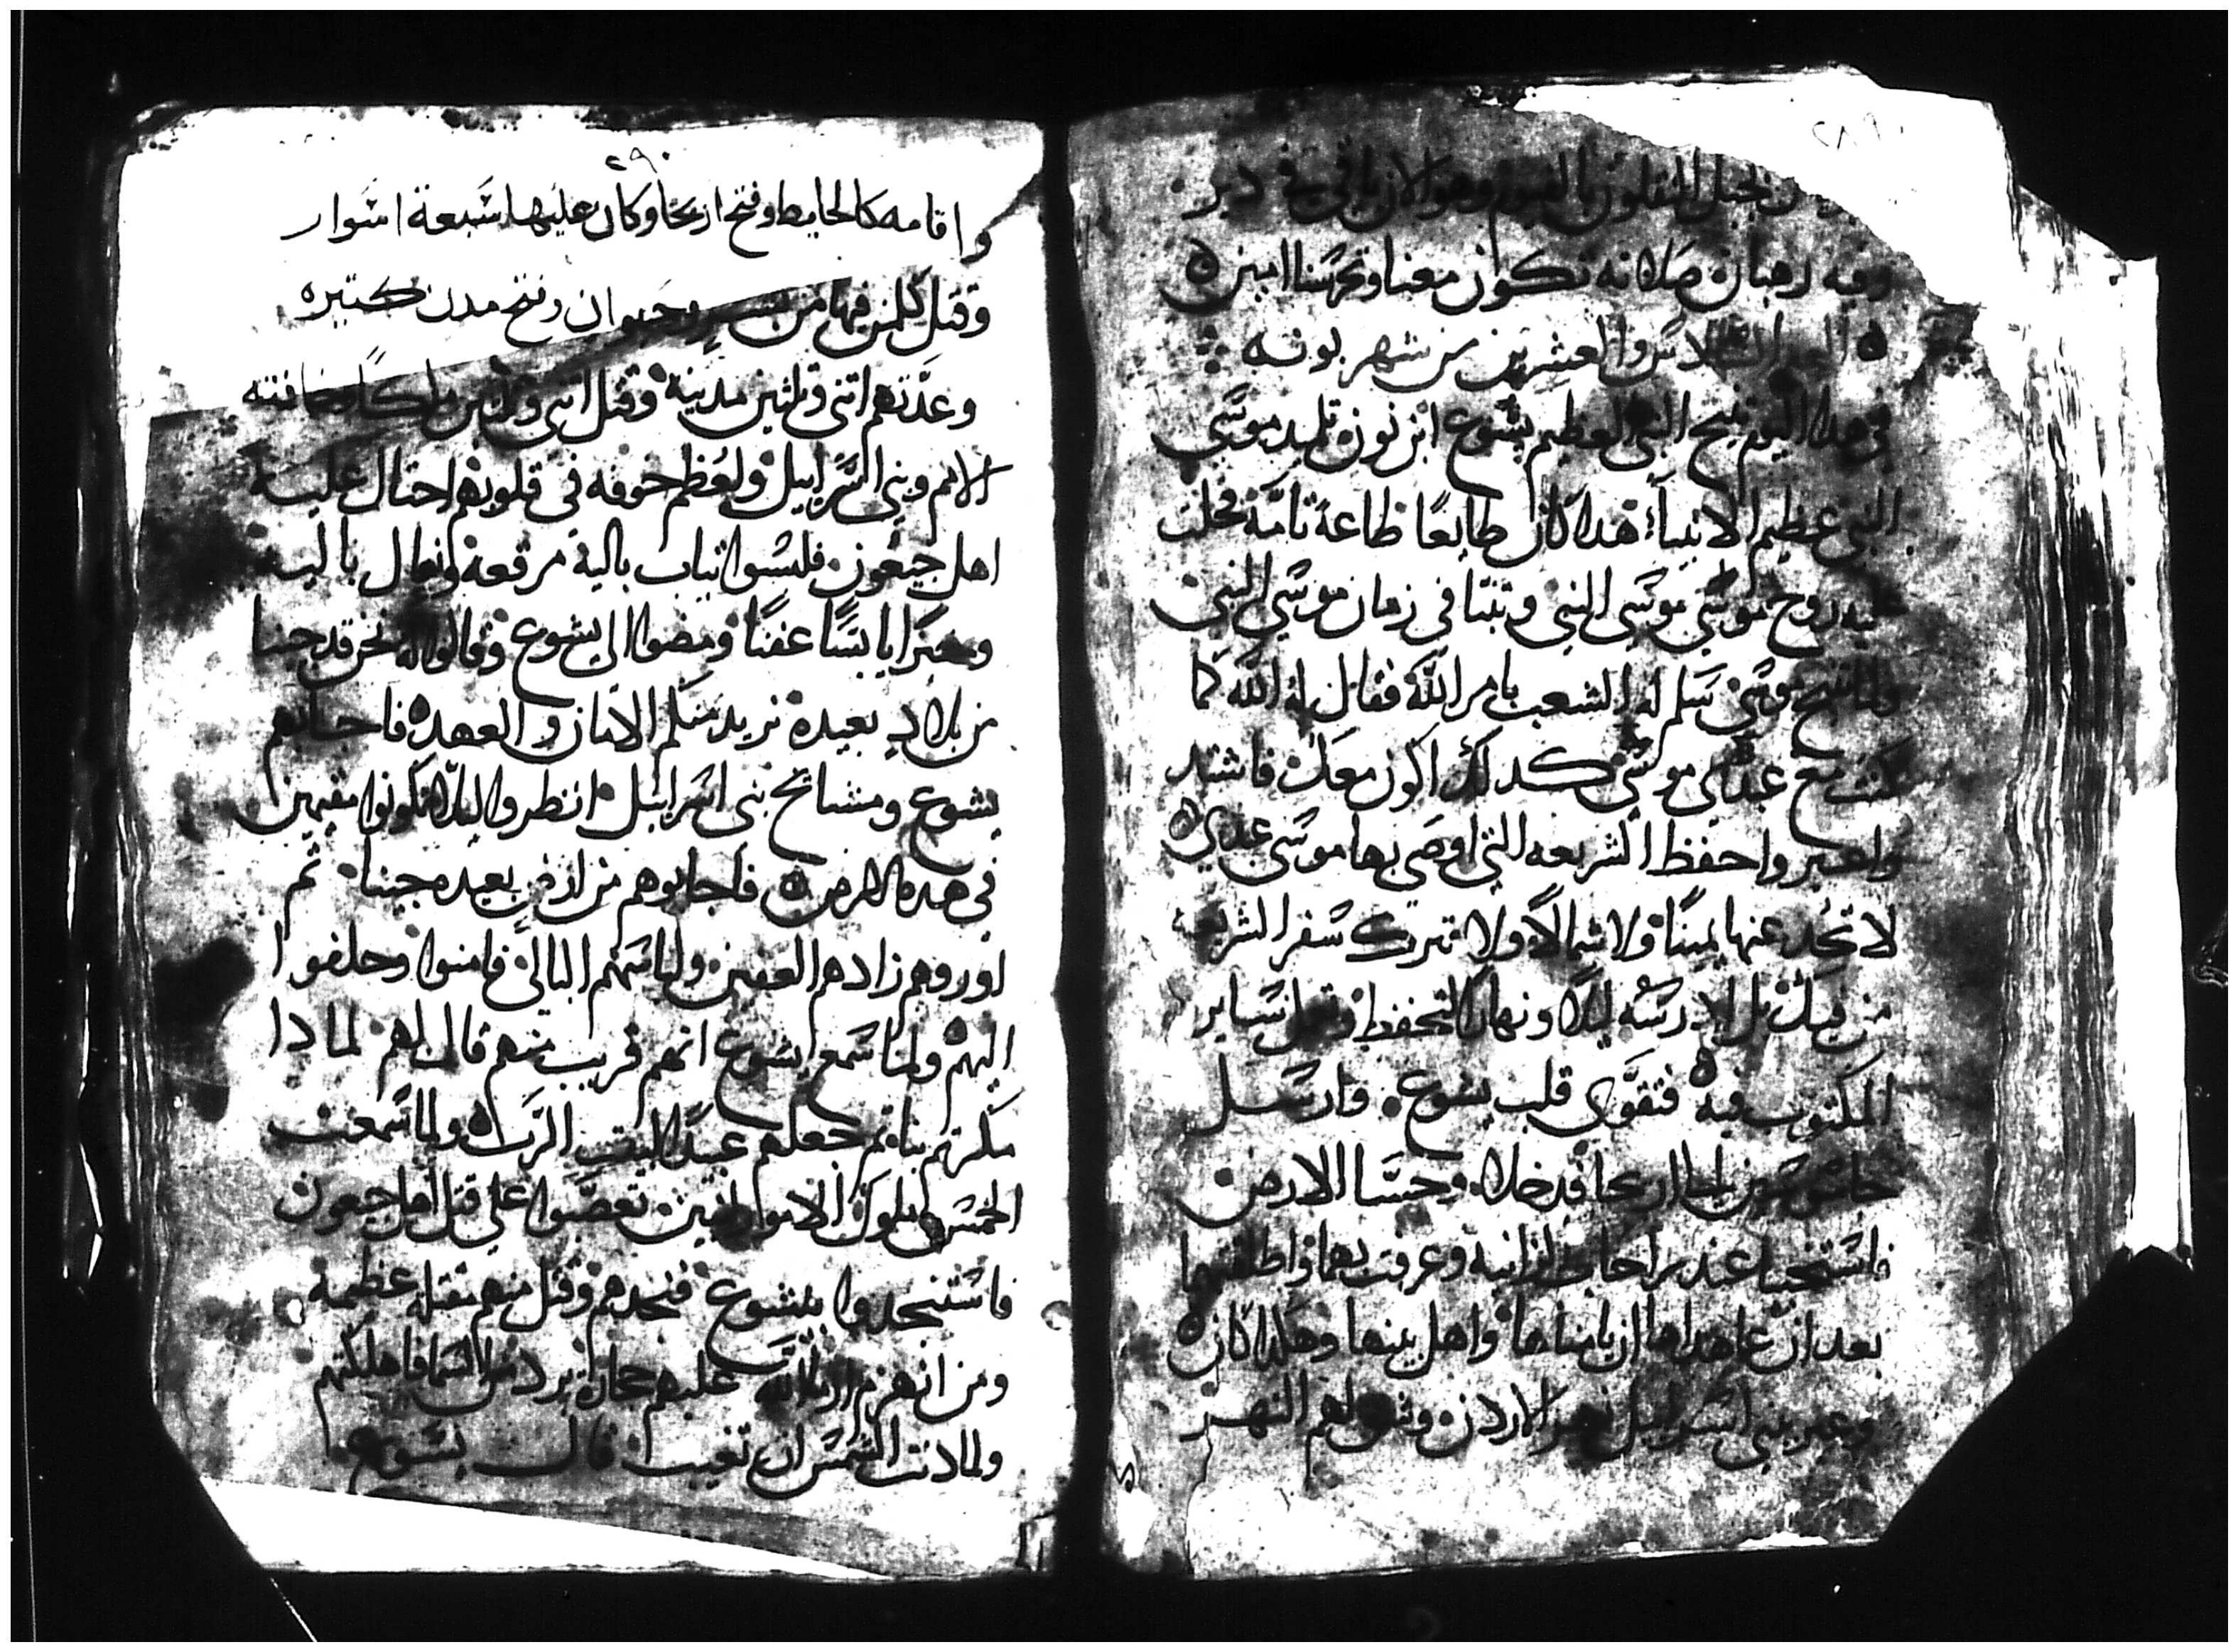 ٢٨٩
بجبل النقلون بالفيوم وهو الان باقي فيه دير
وفيه رهبان صلاته تكون معنا وتحرسنا امين
اليوم السادس والعشرين من شهر بونه
في هدا اليوم تنيح النبي العظيم يشوع ابن نون تلميد موسي
النبي عظيم الانبياء هدا كان طايعًا طاعة تامة فحلت
عليه روح موسي موسي النبي وتنبا في زمان موسي النبي
ولما تنيح موسي سلم له الشعب بامر الله فقال له الله كما
كنت مع عبدي موسي كدلك اكون معك فاشتد
واصبر واحفظ الشريعه التي اوصي بها موسي عبدي
لا تحد عنها يمينًا ولا شمالًا ولا تترك سفر الشريعه
من فيك بل ادرسه ليلًا ونهارًا لتحفظ وتعمل بساير
المكتوب فيه فتقوي قلب يشوع وارسل
جاسوسين الي اريحا فدخلا وجسا الارض
فاستخبيا عند راحاب الزانيه وعرفت بهما واطلقتهما
بعد ان عاهداها ان يامناها واهل بيتها وهكدا كان
وعبر بني اسراييل نهر الاردن وشق لهم النهر
٢٩٠
واقامه كالحايط وفتح اريحا وكان عليها سبعة اسوار
وقتل كلمن فيها من بشر وحيوان وفتح مدن كتيره
وعدتهم اتني وتلتين مدينة وقتل اتني وتلتين ملكًا وخافته
الامم وبني اسراييل ولعظم خوفه في قلوبهم احتال عليه
اهل جبعون فلبسوا تياب بالية مرقعة ونعال باليه
وخبزًا يابسًا عفنًا ومضوا الي يشوع وقالوا له نحن قد جينا
من بلاد بعيدة نريد منكم الامان والعهد فاجابهم
يشوع ومشايخ بني اسراييل انظروا ليلا تكونوا مقيمين
في هده الارض فاجابوهم من ارض بعيده جينا تم
اوروهم زادهم العفين ولباسهم البالي فامنوا وحلفوا
اليهم ولما سمع يشوع انهم قريب منهم قال لهم لمادا
مكرتم بنا تم جعلهم عبيدًا لبيت الرب ولما سمعت
الخمس ملوك الاموانيين تعصبوا علي قتل اهل جبعون
فاستنجدوا بيشوع فنجدهم وقتل منهم مقتله عظيمة
ومن انهزم ارسل الله عليهم حجارة برد من السما فاهلكتهم
ولما دنت الشمس ان تغيب قال يشوع